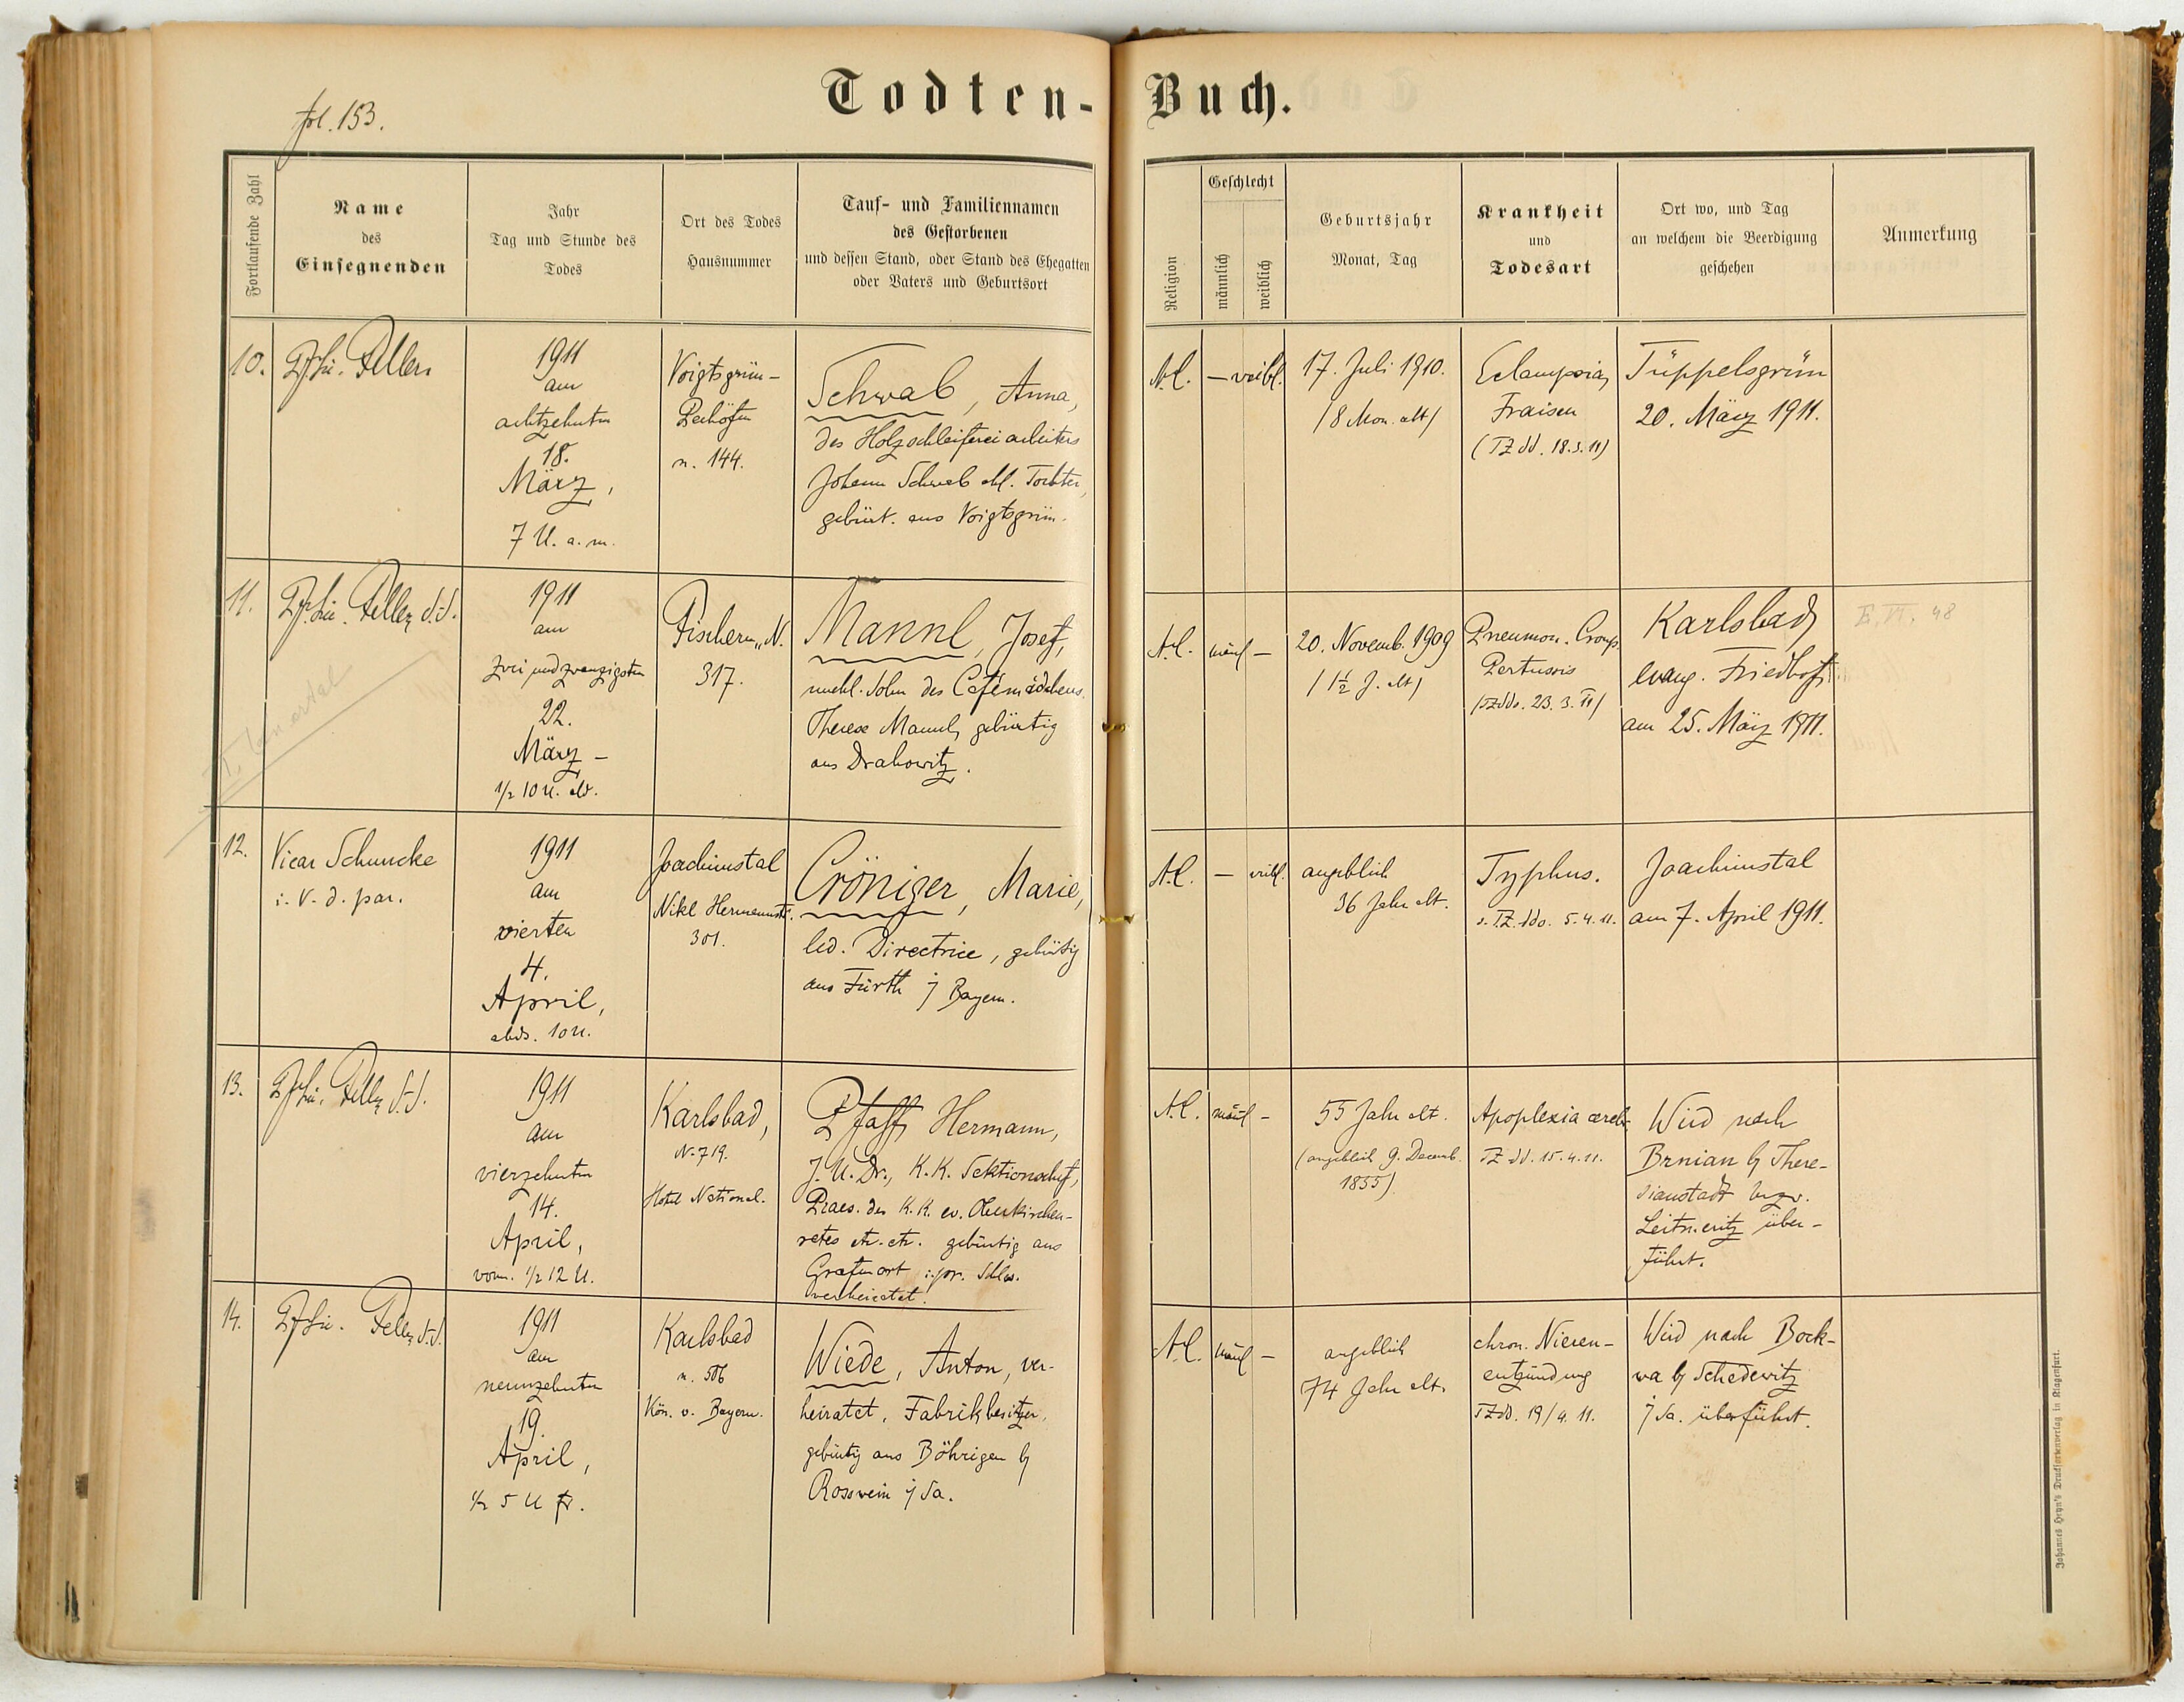 fol. 153.
Todten-Buch.
Fortlaufende Zahl
Name
des
Einsegnenden
Jahr
Tag und Stunde des
Todes
Ort des Todes
Hausnummer
Tauf- und Familiennamen
des Gestorbenen
und dessen Stand, oder Stand des Ehegatten
oder Vaters und Geburtsort
Religion
Geschlecht
männlich
weiblich
Geburtsjahr
Monat, Tag
Krankheit
und
Todesart
Ort wo, und Tag
an welchem die Beerdigung
geschehen
Anmerkung
10.
Feller
1911
am
achtzehnten
18.
März,
7 U. a. m.
Voigtsgrün-
n. 144.
Schwab, Anna,
des Holzschleifereiarbeiters
Johann Schwab ehl. Tochter,
gebürt. aus Voigtsgrün.
A.C.
— weibl.
17. Juli 1910.
/8 Mon. alt/
Eclampsia,
Fraisen
(TZ dd. 18.3.11)
Tüppelsgrün
20. März 1911.
11.
Feller d.J.
1911
am
zweiundzwanzigsten
22.
März –
1/2 10 U. ab.
Fischern, N.
317.
Mannl, Josef,
unehl. Sohn des Cafémädchens
Therese Mannl, gebürtig
aus Drahowitz.
A.C.
männl –
20. Novemb. 1909
/1½ J. alt/
Pneumon. Croup.
Pertussis
/TZ ddo. 23. 3. 11/
Karlsbad,
evang. Friedhof
am 25. März 1911.
E. VI. 48
12.
Vicar Schuncke
i. V. d. par.
1911
am
vierten
4.
April,
abds. 10 U.
Joachimstal
Nikl Hermannstr.
301.
Cröniger, Marie,
led. Directrice, gebürtig
aus Fürth i/ Bayern.
A.C.
— weibl.
angeblich
36 Jahr alt.
Typhus.
s. TZ. ddo. 5.4.11.
Joachimstal
am 7. April 1911.
13.
Feller d.J.
1911
am
vierzehnten
14.
April,
vorm. 1/2 12 U.
Karlsbad,
N. 719.
Hotel National.
Pfaff, Hermann,
J. U. Dr., K.K. Sektionschef,
Praes. des K.K. ev. Oberkirchen-
rates etc. etc. gebürtig aus
Grafenort i. pr. Schles.
verheiratet.
A.C.
männl –
55 Jahr alt.
(angeblich 9. Decemb.
1855)
Apoplexia cerebr.
TZ dd. 15.4.11.
Wird nach
Brnian b/ There-
sienstadt bezw.
Leitmeritz über-
führt.
14.
Feller d.J.
1911
am
neunzehnten
19.
April,
1/2 5 U fr.
Karlsbad
n. 506
Kön. v. Bayern.
Wiede, Anton, ver-
heiratet, Fabrikbesitzer,
gebürtig aus Böhrigen b/
Rosswein i/ Sa.
A.C.
männl –
angeblich
74 Jahr alt.
chron. Nieren-
entzündung
TZ dd. 19/4. 11.
Wird nach Bock-
wa b/ Schedewitz
i/ Sa. überführt.
Johannes Heyn's Drucksortenverlag in Klagenfurt.